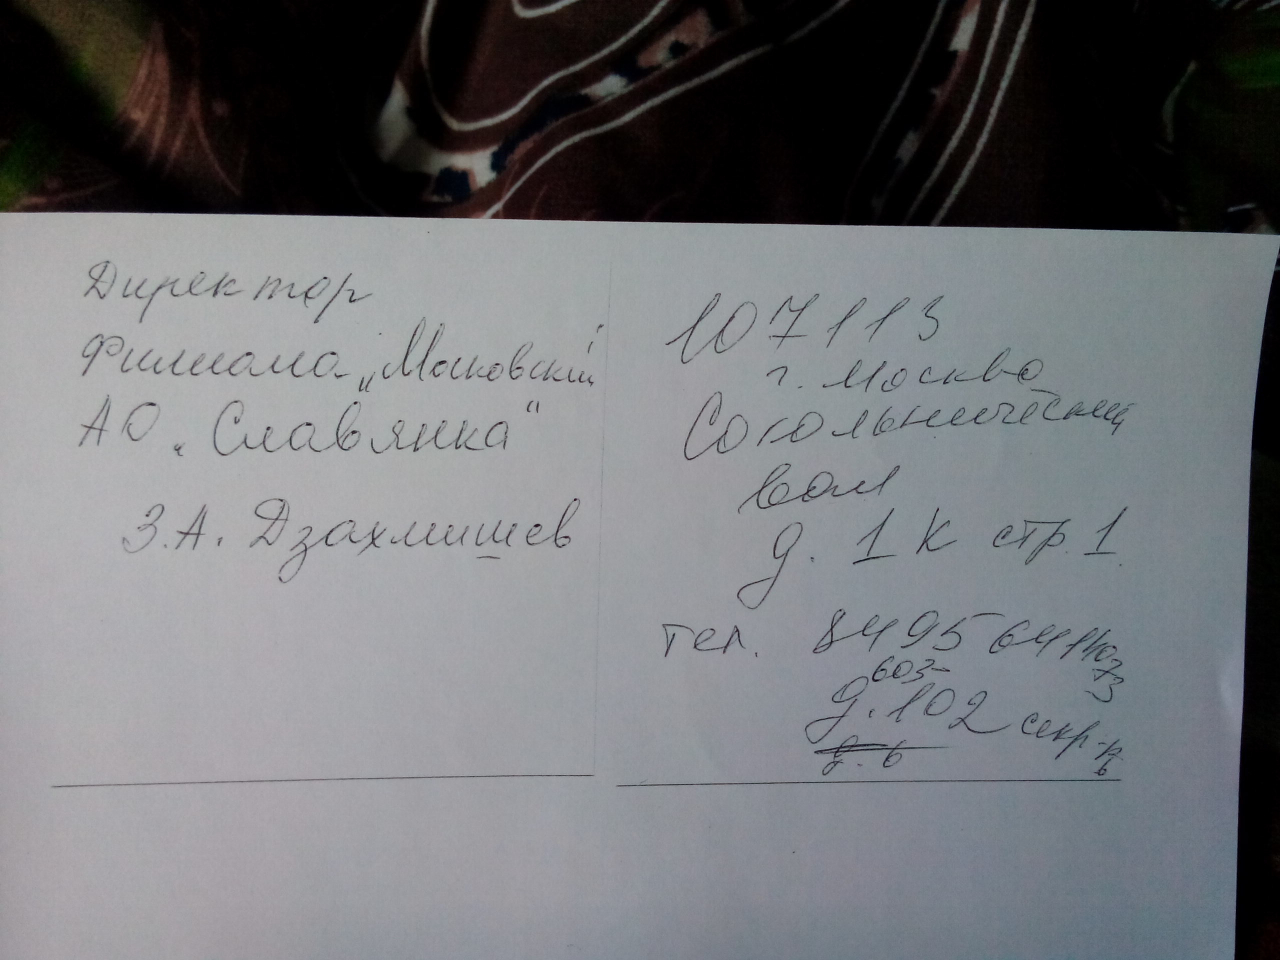 Директор
Филиала „Московский"
АО „Славянка"
З.А. Дзахмишев
107113
г. Москва
Сокольнический
вал
д. 1 К стр. 1
тел. 8495 641
603-
д. 102 секр-рь
д. 6